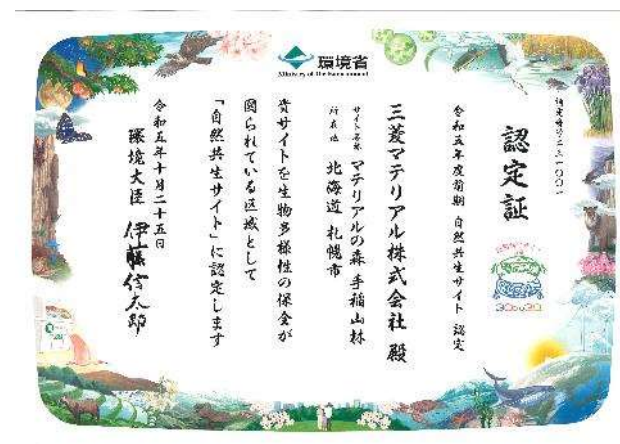 環境省
Ministry of the Environment
認定証
令和五年度前期 自然共生サイト 認定
三菱マテリアル株式会社 殿
サイト名称 マテリアルの森 手稲山林
所在地 北海道 札幌市
貴サイトを生物多様性の保全が
図られている区域として
「自然共生サイト」に認定します
令和五年十月二十五日
環境大臣 伊藤信太郎
30by30